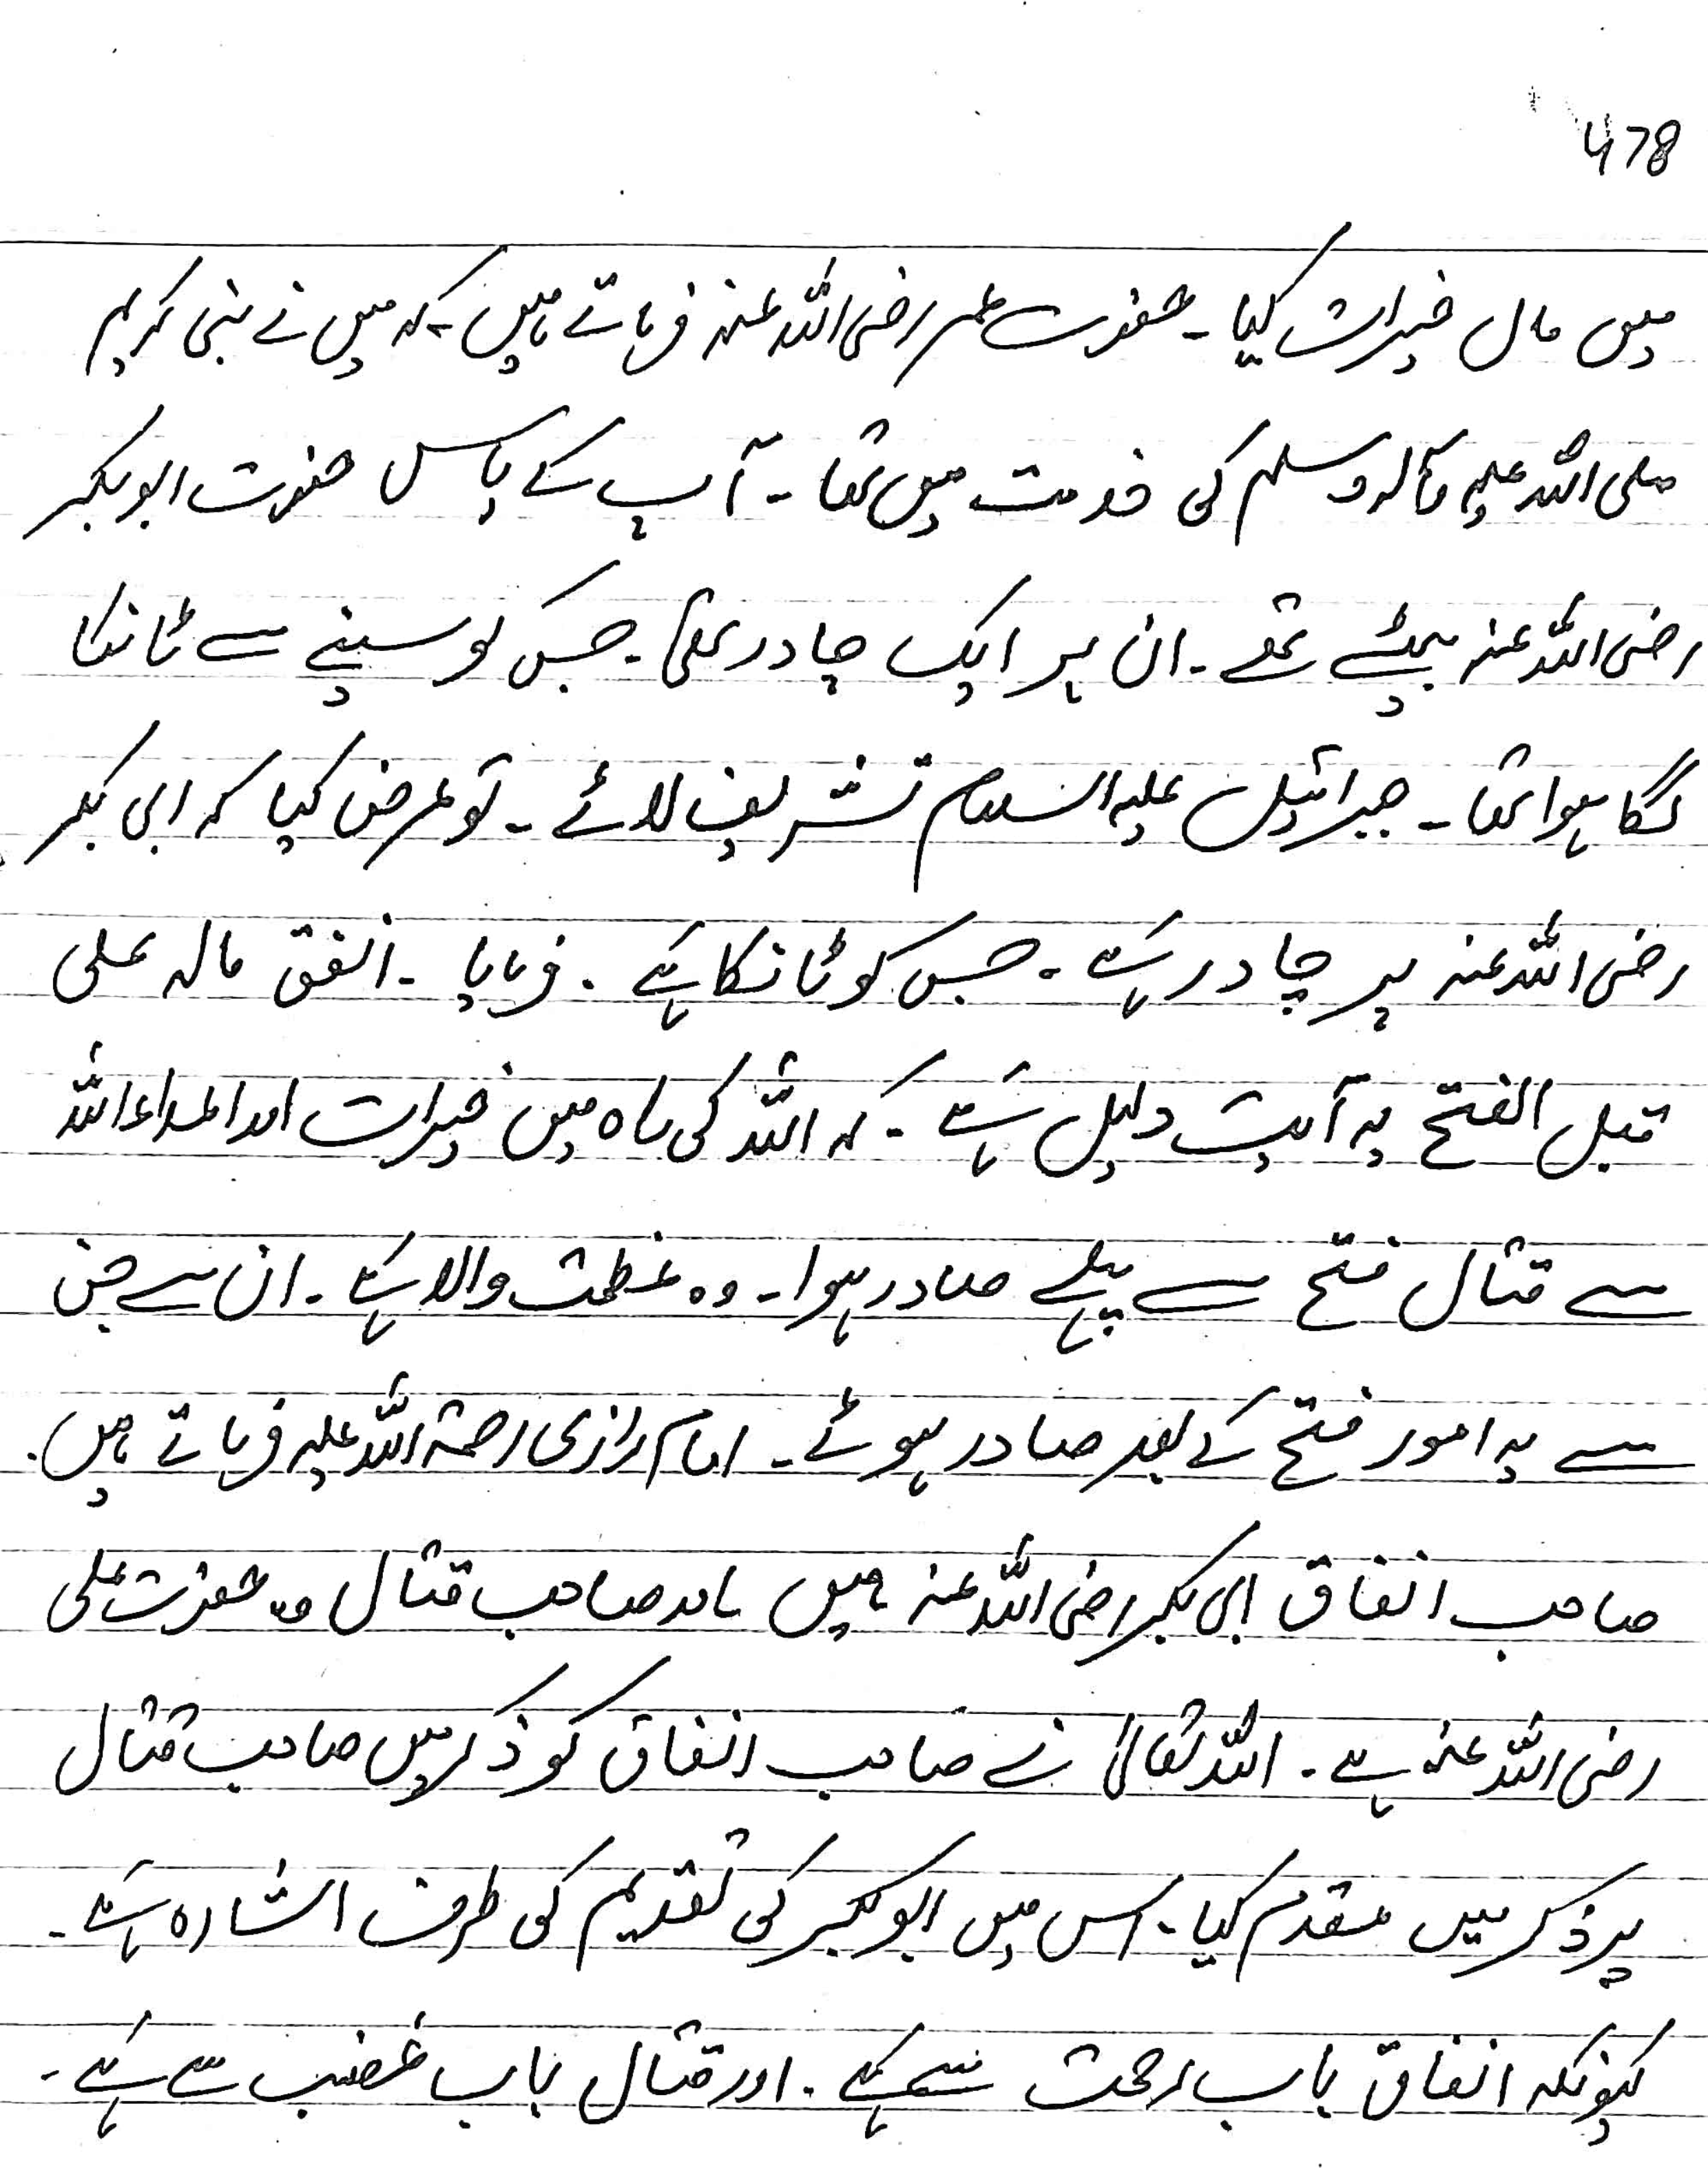 478
میں مال خیرات کیا۔ حضرت عمر رضی اللہ عنہ فرماتے ہیں۔ کہ میں نے نبی کریم
صلی اللہ علیہ وآلہ وسلم کی خدمت میں تھا۔ آپ کے پاس حضرت ابوبکر
رضی اللہ عنہ بیٹھے تھے۔ ان پر ایک چادر تھی۔ جس کو سینے سے ٹانکا
لگا ہوا تھا۔ جبرائیل علیہ السلام تشریف لائے۔ تو عرض کیا کہ ابی بکر
رضی اللہ عنہ پر چادر ہے۔ جس کو ٹانکا ہے۔ فرمایا۔ انفق مالہ علی
قبل الفتح یہ آیت دلیل ہے۔ کہ اللہ کی راہ میں خیرات اور اعداء اللہ
سے قتال فتح سے پہلے صادر ہوا۔ وہ عظمت والا ہے۔ ان سے جن
سے یہ امور فتح کے بعد صادر ہوئے۔ امام رازی رحمۃ اللہ علیہ فرماتے ہیں۔
صاحب انفاق ابی بکر رضی اللہ عنہ ہیں اور صاحب قتال وہ حضرت علی
رضی اللہ عنہ ہے۔ اللہ تعالیٰ نے صاحب انفاق کو ذکر میں صاحب قتال
پر ذکر میں مقدم کیا۔ اس میں ابوبکر کی تقدیم کی طرف اشارہ ہے۔
کیونکہ انفاق باب رحمت سے ہے۔ اور قتال باب غضب سے ہے۔